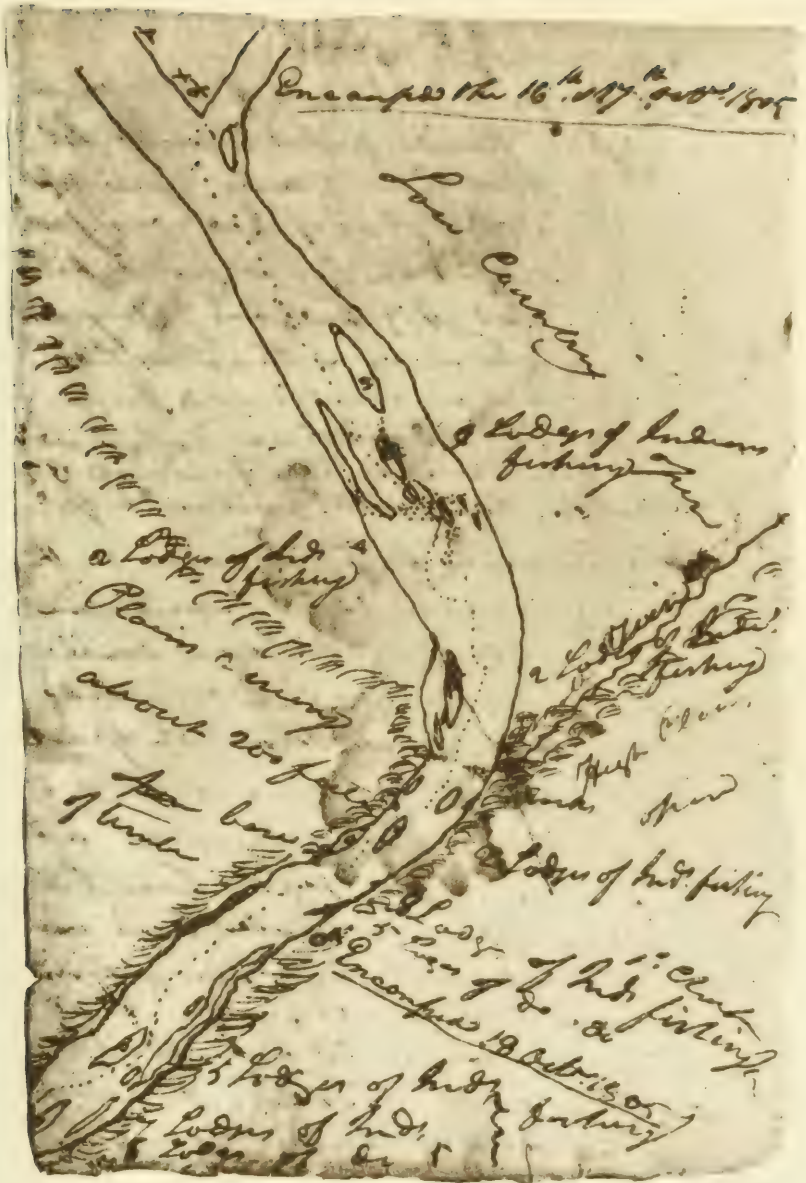 Encamped the 16th & 17th Octr. 1805
Low
Country
Lodges of Indians
fishing
2 Lodges of Inds
fishing
Plains
about 200 feet
bare
of timber
2 Lodges of Inds.
fishing
High Plains
open
Lodges of Inds fishing
Lodges of Inds fishing
5 Lodges of do do
Encamped 18 Octr. 1805
5 Lodges of Inds fishing
Lodges of Inds.
Lodges of do